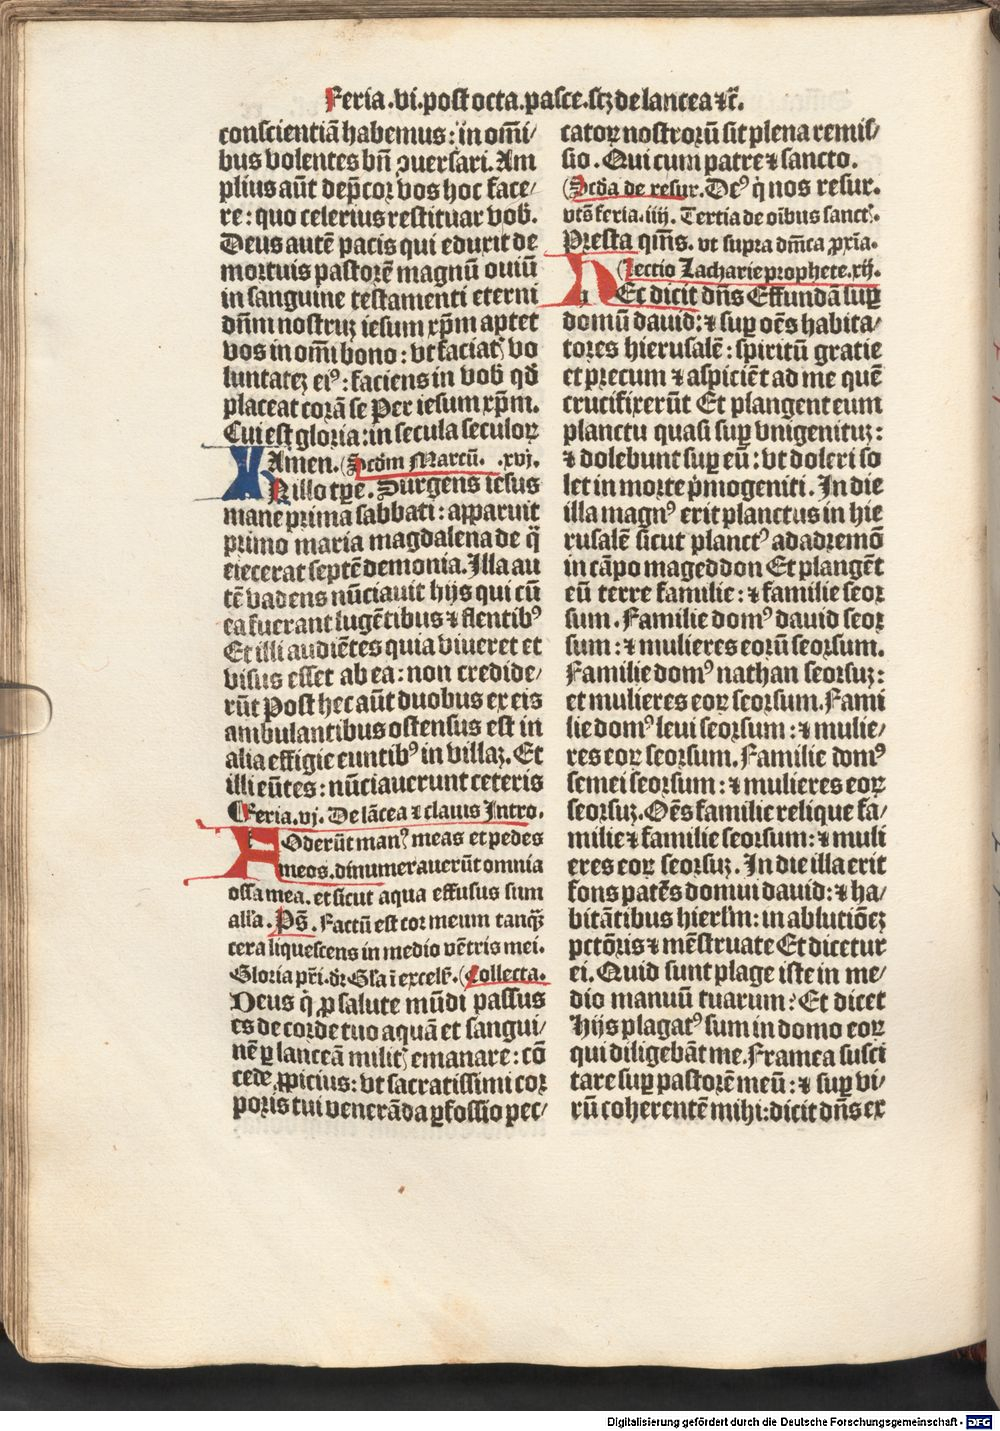 Feria .vi. post octa. pasce. scz de lancea ⁊c̃.
conscientiã habemus: in om̃i/
bus volentes bñ ꝯuersari. Am
plius aũt dep̃cor vos hoc face/
re: quo celerius restituar vob̃.
Deus autẽ pacis qui eduxit de
mortuis pastorẽ magnũ ouiũ
in sanguine testamenti eterni
dñm nostruz iesum xp̃m aptet
vos in om̃i bono: vt faciatꝭ vo
luntatez eiꝰ: faciens in vob̃ qđ
placeat corã se Per iesum xp̃m.
Cui est gloria: in secula seculoꝝ
Amen. (Scđm Marcũ. .xvj.
INillo tꝑe. Surgens iesus
mane prima sabbati: apparuit
primo maria magdalena de q̃
eiecerat septẽ demonia. Illa au
tẽ vadens nũciauit hijs qui cũ
ea fuerant lugẽtibus ⁊ flentibꝰ
Et illi audiẽtes quia viueret et
visus esset ab ea: non credide/
rũt Post hec aũt duobus ex eis
ambulantibus ostensus est in
alia effigie euntibꝰ in villaz. Et
illi eũtes: nũciauerunt ceteris
(Feria .vj. De lãcea ⁊ clauis Intro.
FOderũt manꝰ meas et pedes
meos. dinumerauerũt omnia
ossa mea. et sicut aqua effusus sum
alľa. Ps̃. Factũ est cor meum tanqȝ̃
cera liquescens in medio vẽtris mei.
Gloria pr̃i. dr̃ Gľa ĩ excelš. (Collecta.
Deus q̇ ꝓ salute mũdi passus
es de corde tuo aquã et sangui/
nẽ ꝑ lanceã militꝭ emanare: cõ
cede ꝓpicius: vt sacratissimi cor
poris tui venerãda ꝑfossio pec/
catoꝝ nostrorũ sit plena remis/
sio. Qui cum patre ⁊ sancto.
(Scđa de resur. Deꝰ q̇ nos resur.
vts̃ feria .iiij. Tertia de oĩbus sanctꝭ.
Presta qm̃s. vt supra dñica ꝓxĩa.
(Lectio Zacharie prophete .xij.
HEc dicit dñs Effundã suꝑ
domũ dauid: ⁊ suꝑ oẽs habita/
tores hierusalẽ: spiritũ gratie
et precum ⁊ aspiciẽt ad me quẽ
crucifixerũt Et plangent eum
planctu quasi suꝑ vnigenituz:
⁊ dolebunt suꝑ eũ: vt doleri so
let in morte p̃mogeniti. In die
illa magnꝰ erit planctus in hie
rusalẽ sicut planctꝰ adadremõ
in cãpo mageddon Et plangẽt
eũ terre familie: ⁊ familie seoꝛ
sum. Familie domꝰ dauid seoꝛ
sum: ⁊ mulieres eorũ seorsum.
Familie domꝰ nathan seorsuz:
et mulieres eoꝝ seorsum. Fami
lie domꝰ leui seorsum: ⁊ mulie/
res eoꝝ seorsum. Familie domꝰ
semei seorsum: ⁊ mulieres eoꝝ
seorsuz. Oẽs familie relique fa/
milie ⁊ familie seorsum: ⁊ muli
eres eoꝝ seorsuz. In die illa erit
fons patẽs domui dauid: ⁊ ha/
bitãtibus hierľm: in ablutiõez
pctõris ⁊ mẽstruate Et dicetur
ei. Quid sunt plage iste in me/
dio manuũ tuarum: Et dicet
Hijs plagatꝰ sum in domo eoꝝ
qui diligebãt me. Framea susci
tare suꝑ pastorẽ meũ: ⁊ suꝑ vi/
rũ coherentẽ mihi: dicit dñs ex
Digitalisierung gefördert durch die Deutsche Forschungsgemeinschaft - DFG